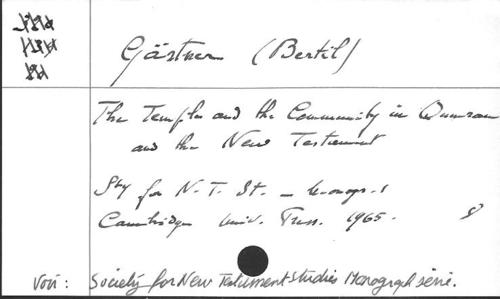 Gärtner (Bertil)
The Temple and the Community in Qumran
and the New Testament
Sty for N. T. St. – Monogr. 1
Cambridge Univ. Press. 1965. 8
Voir : Society for New Testament Studies Monograph série.